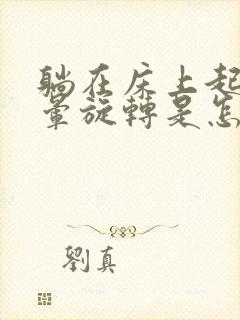 躺在床上起
暈旋轉是怎
劉真